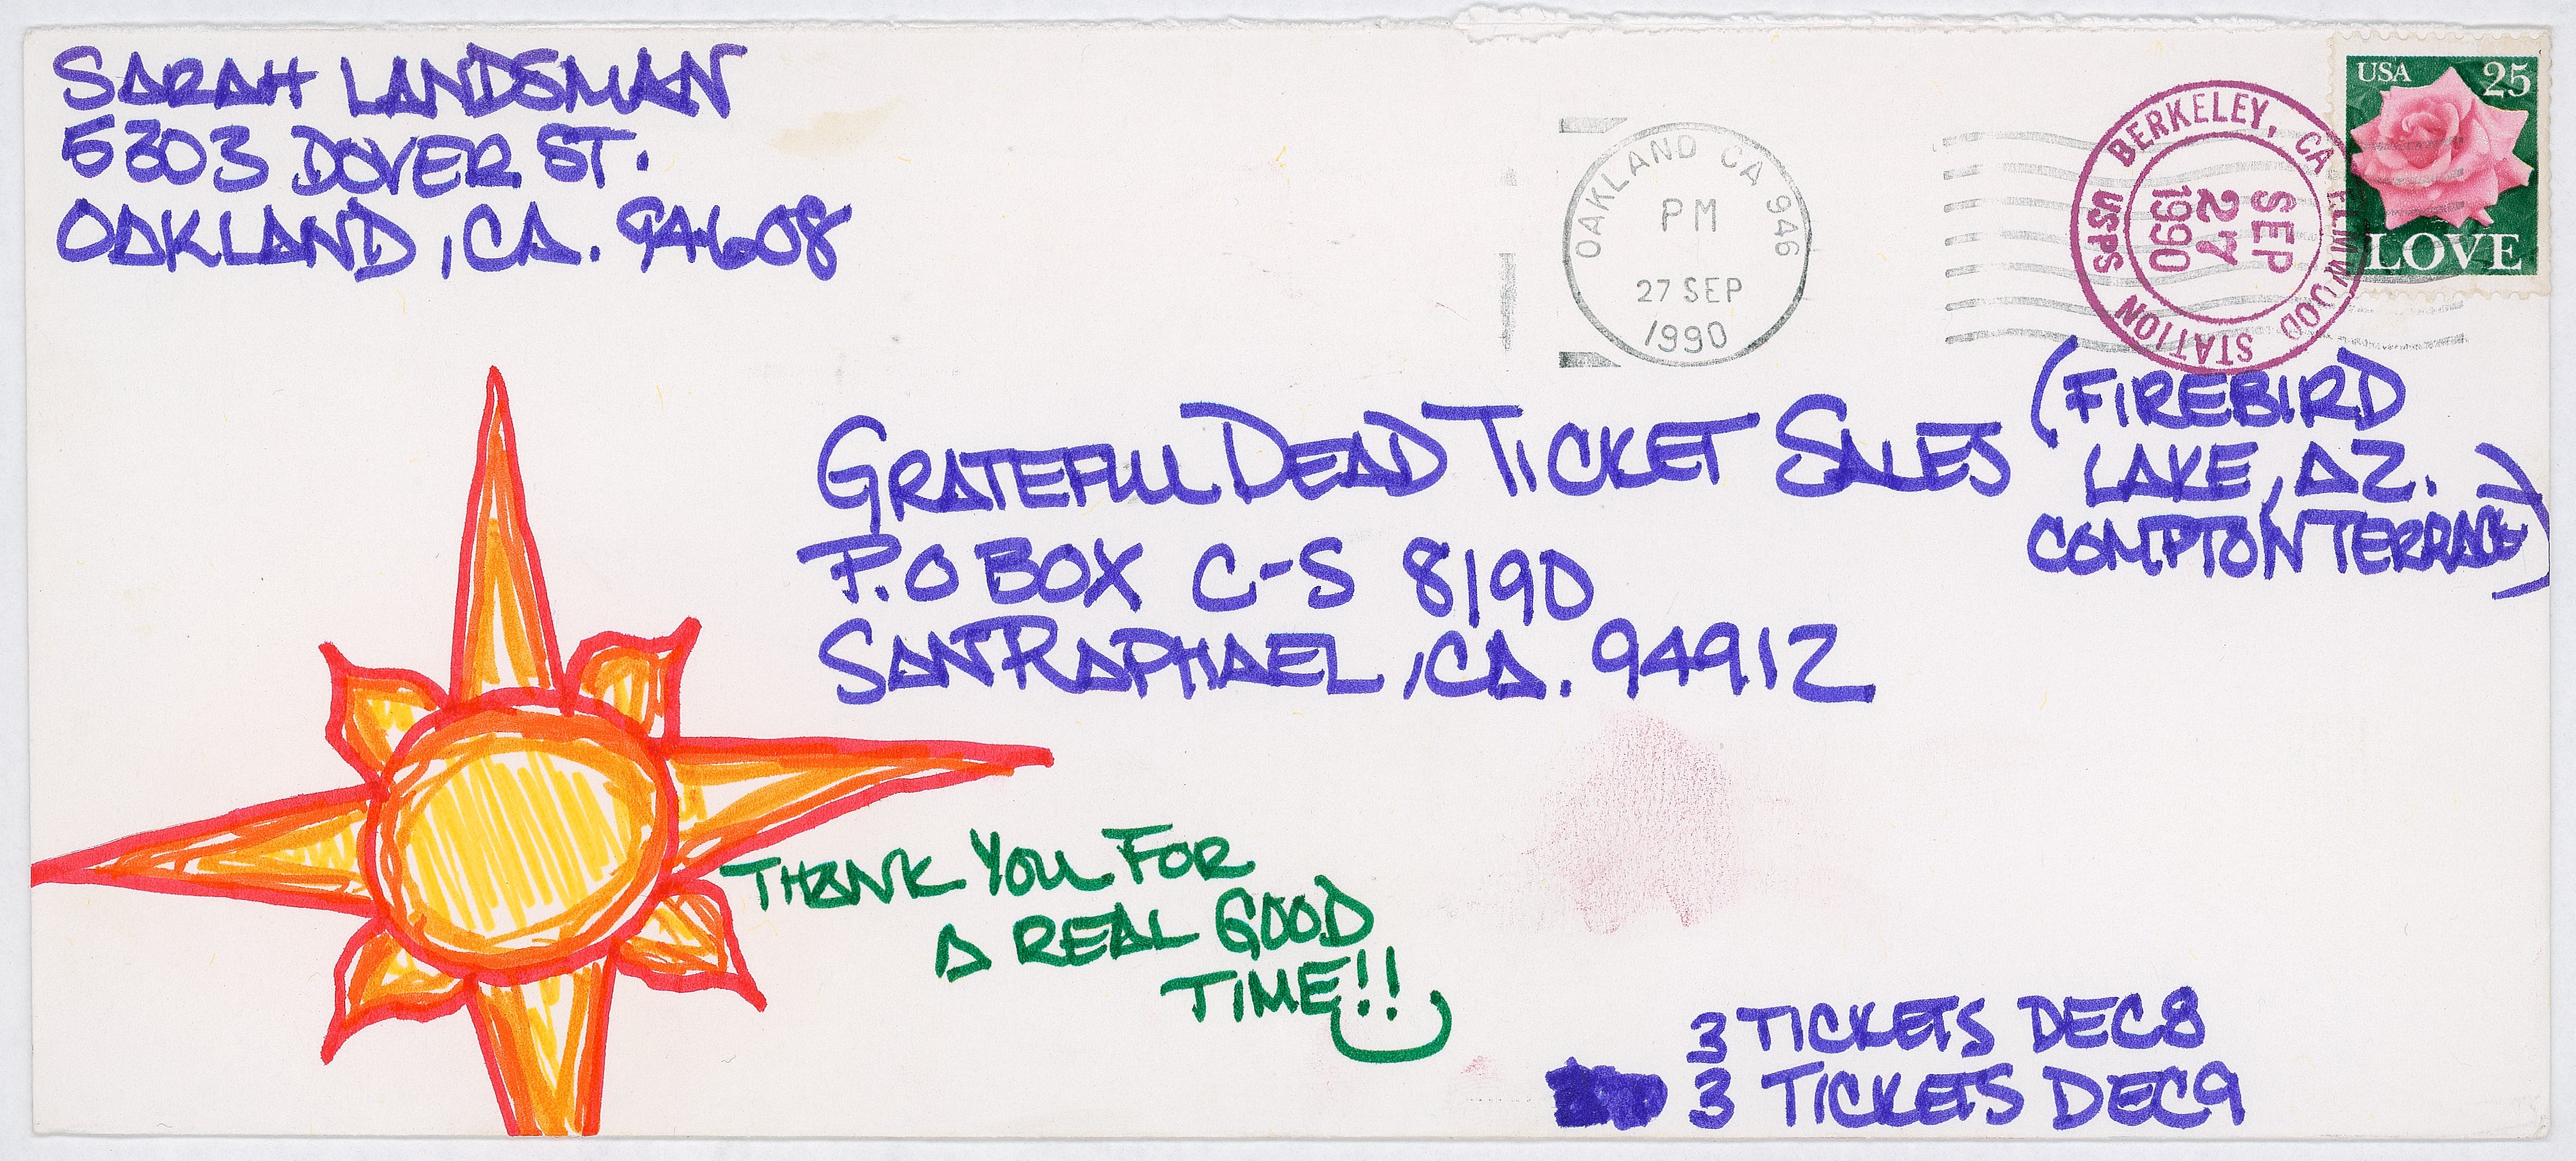 SARAH LANDSMAN
5303 DOVER ST.
OAKLAND, CA. 94608
OAKLAND CA 946
PM
27 SEP
1990
BERKELEY, CA ELMWOOD STATION USPS
SEP
27
1990
USA 25
LOVE
GRATEFULL DEAD TICKET SALES
P.O BOX C-S 8190
SAN RAPHAEL, CA. 94912
(FIREBIRD
LAKE, AZ.
COMPTON TERRACE)
THANK YOU FOR
A REAL GOOD
TIME!!
3 TICKETS DEC 8
3 TICKETS DEC 9